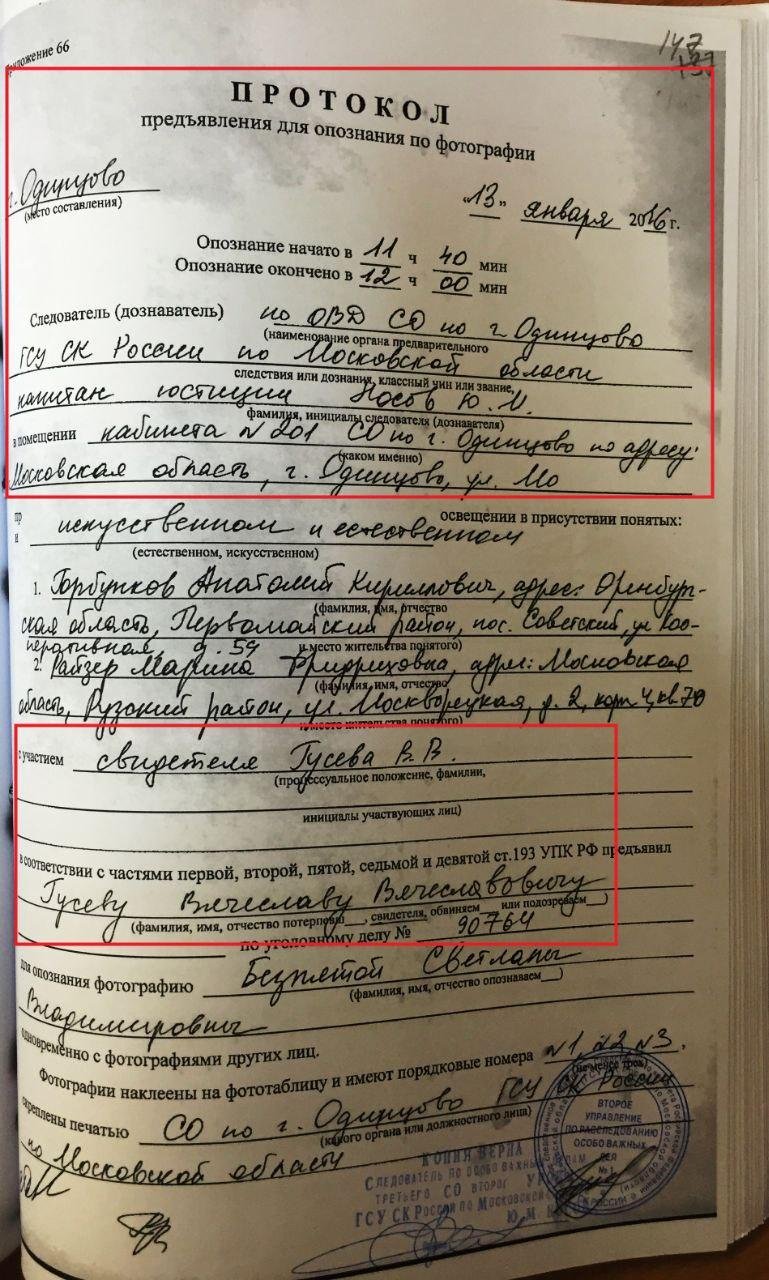 Приложение 66
147
ПРОТОКОЛ
предъявления для опознания по фотографии
г. Одинцово
(место составления)
"13" января 2016 г.
Опознание начато в 11 ч 40 мин
Опознание окончено в 12 ч 00 мин
Следователь (дознаватель) по ОВД СО по г. Одинцово
(наименование органа предварительного
ГСУ СК России по Московской области
следствия или дознания, классный чин или звание,
капитан юстиции Носов Ю.М.
фамилия, инициалы следователя (дознавателя)
в помещении кабинета №201 СО по г. Одинцово по адресу:
(каком именно)
Московская область, г. Одинцово, ул. Мо
пр искусственном и естественном освещении в присутствии понятых:
и
(естественном, искусственном)
1. Горбунков Анатолий Кириллович, адрес: Оренбург-
(фамилия, имя, отчество
ская область, Первомайский район, пос. Советский, ул Коо-
перативная, д. 59
и место жительства понятого)
2. Райзер Марина Фридриховна, адрес: Московская
(фамилия, имя, отчество
область, Рузский район, ул. Москворецкая, д. 2, корп 4, кв. 70
и место жительства понятого)
с участием свидетеля Гусева В.В.
(процессуальное положение, фамилии,
инициалы участвующих лиц)
в соответствии с частями первой, второй, пятой, седьмой и девятой ст.193 УПК РФ предъявил
Гусеву Вячеславу Вячеславовичу
(фамилия, имя, отчество потерпевш__, свидетеля, обвиняем__ или подозреваем__)
по уголовному делу № 90764
для опознания фотографию Безпятой Светланы
(фамилия, имя, отчество опознаваем__)
Владимировны
одновременно с фотографиями других лиц.
Фотографии наклеены на фототаблицу и имеют порядковые номера №1, №2, №3.
(не менее трех)
скреплены печатью СО по г. Одинцово ГСУ СК России
(какого органа или должностного лица)
по Московской области
ВТОРОЕ
УПРАВЛЕНИЕ
ПО РАССЛЕДОВАНИЮ
ОСОБО ВАЖНЫХ
ДЕЛ
№ 1
КОПИЯ ВЕРНА
СЛЕДОВАТЕЛЬ ПО ОСОБО ВАЖНЫМ ДЕЛАМ
ТРЕТЬЕГО СО ВТОРОГ
ГСУ СК РОССИИ ПО МОСКОВСКОЙ
Ю.М.